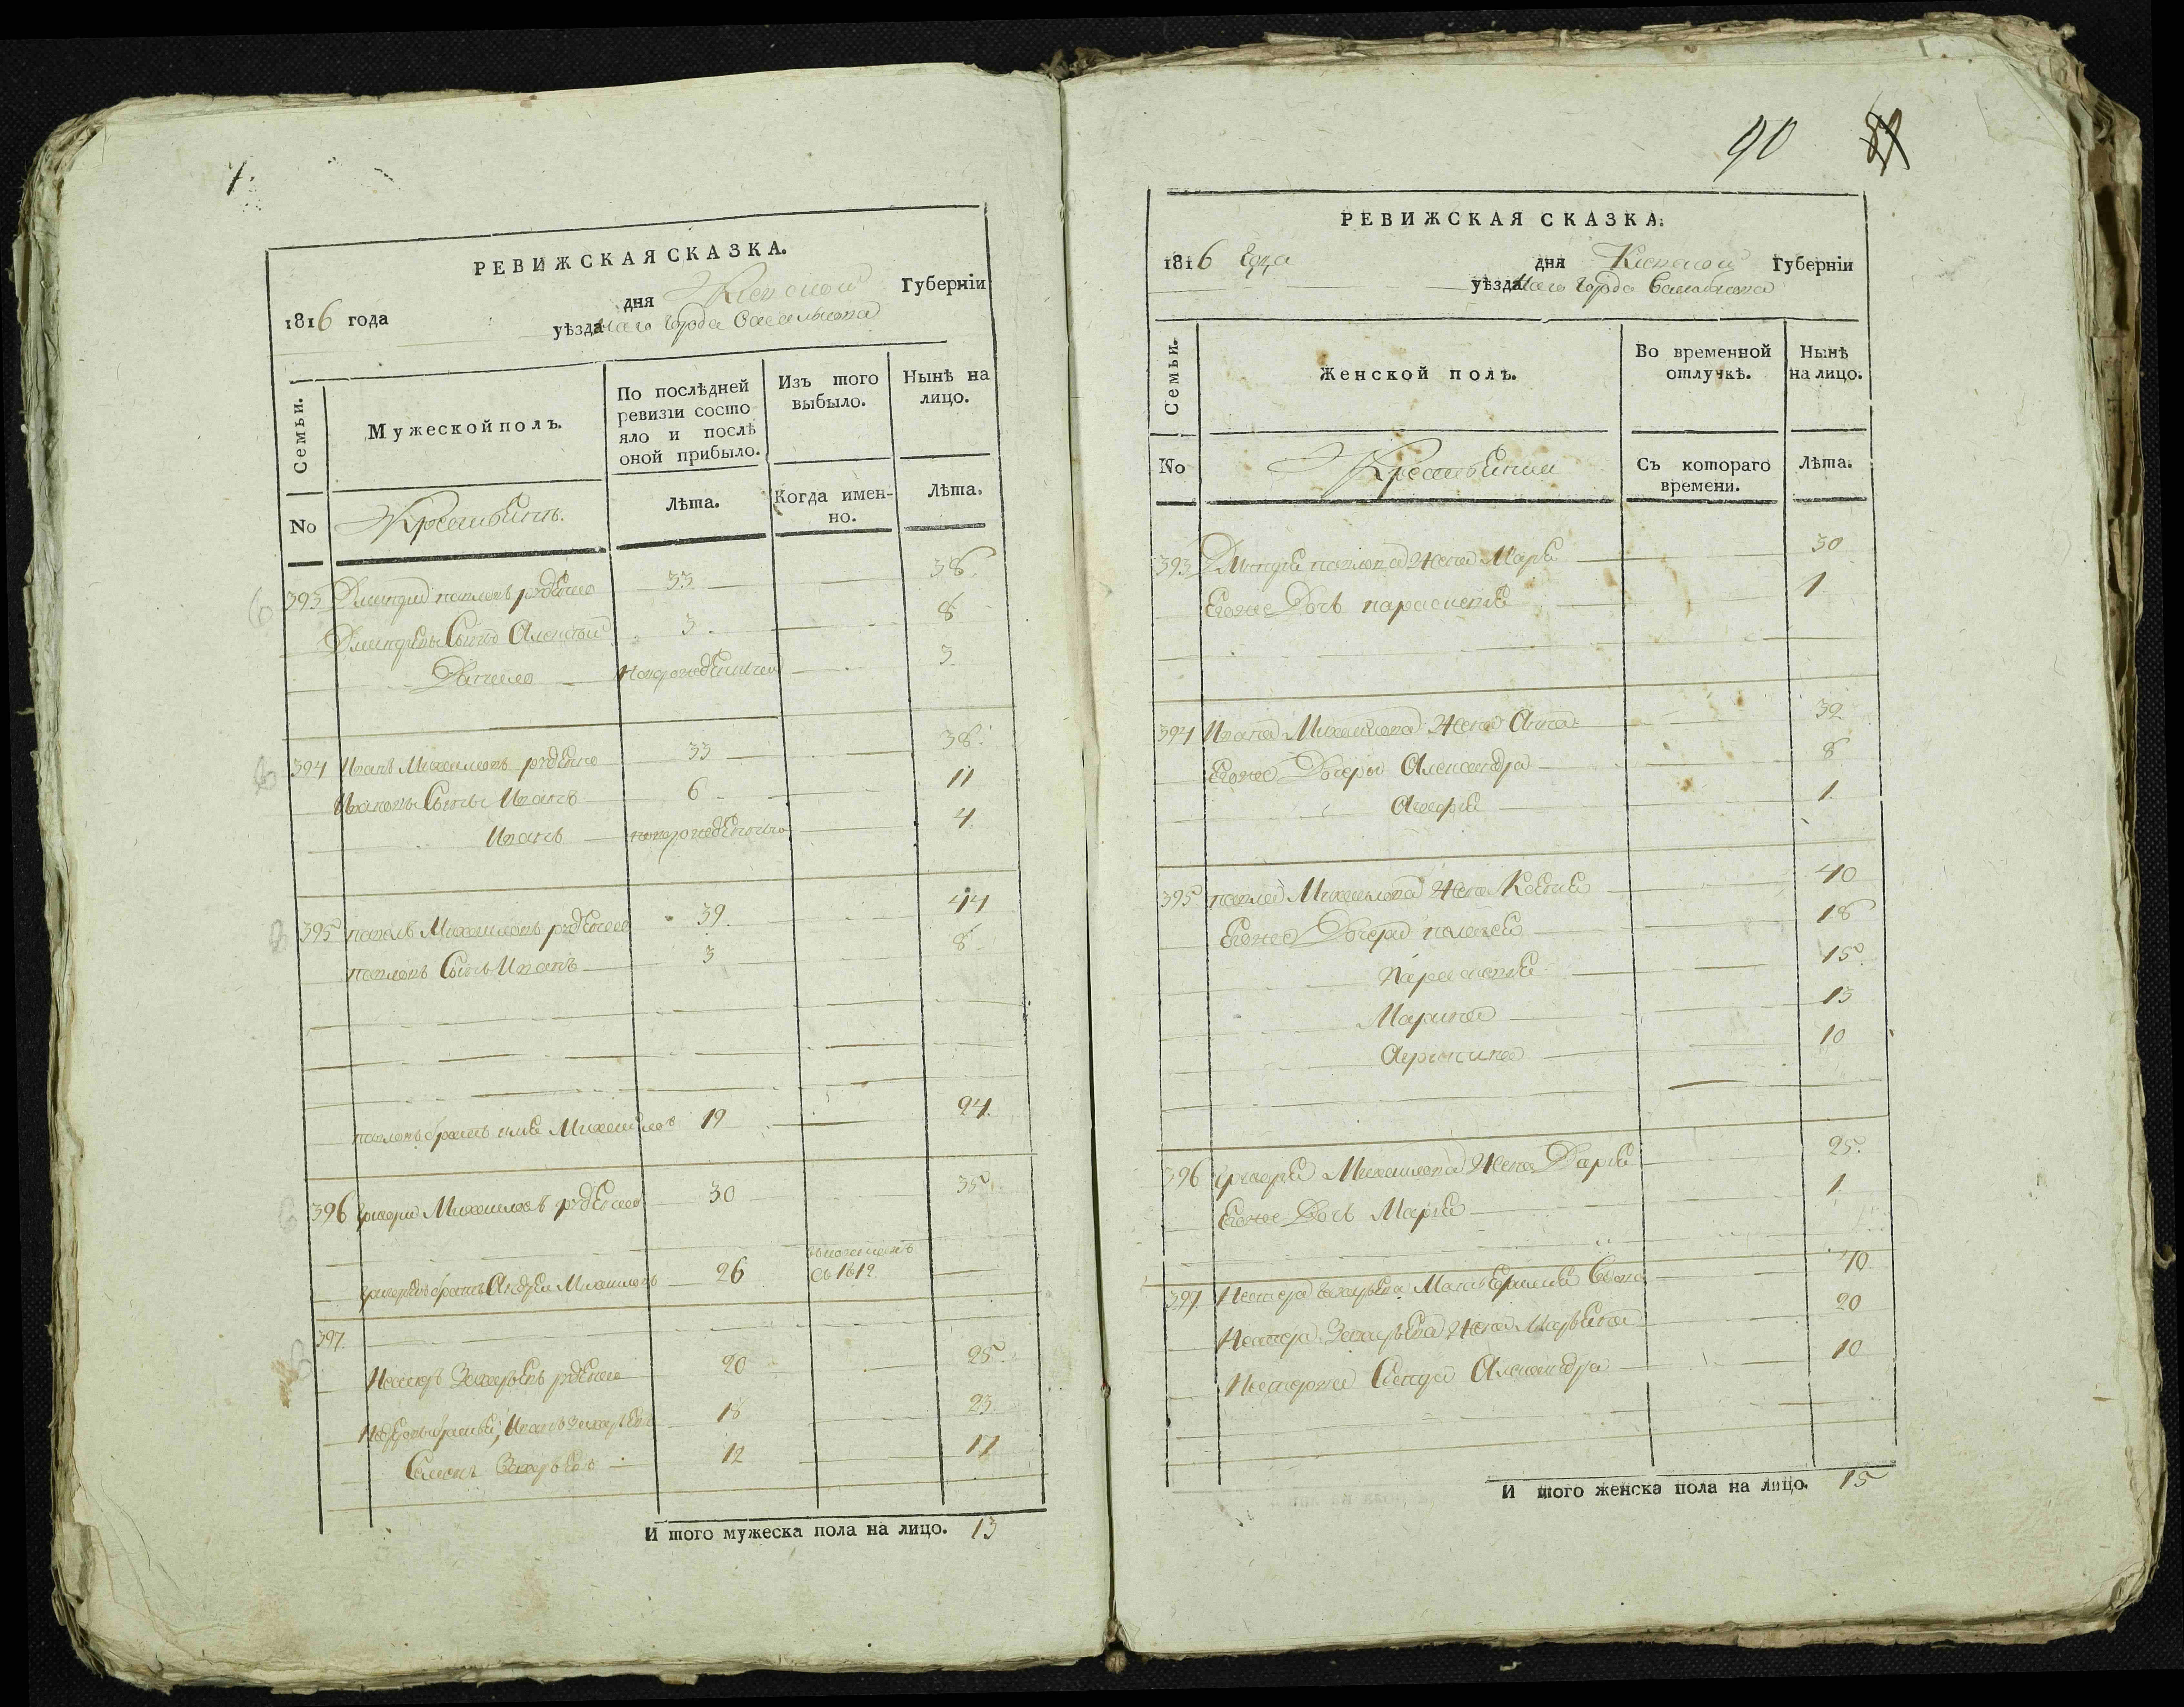 7.
РЕВИЖСКАЯ СКАЗКА.
1816 года дня Кіевской Губерніи
уѣзда города Василькова
Семьи.
Мужеской полъ.
По послѣдней ревизіи состояло и послѣ оной прибыло.
Изъ того выбыло.
Нынѣ на лицо.
No
Лѣта.
Когда именно.
Лѣта.
393 Дмитрій Павловъ 33 38
Дмитріевы Сыны Алексѣй 3 8
Данило новорожденный 3
394 Иванъ Михайловъ 33 38
Ивановы Сыны Иванъ 6 11
Иванъ новорожденный 4
395 Павелъ Михайловъ 39 44
Павловъ Сынъ Иванъ 3 8
Павловъ братъ Илья Михайловъ 19 24
396 Григорій Михайловъ 30 35
Григорьевъ братъ Андрей Михайловъ 26 1812
397.
Несторъ Захарьевъ 20 25
Иванъ Захарьевъ 18 23
Семенъ Захарьевъ 12 17
И того мужеска пола на лицо. 13
90
РЕВИЖСКАЯ СКАЗКА.
1816 года дня Кіевской Губерніи
уѣзда города Василькова
Семьи.
Женской полъ.
Во временной отлучкѣ.
Нынѣ на лицо.
No
Съ котораго времени.
Лѣта.
393 Дмитрія Павлова Жена Марья 30
Егоже Дочь Параскевія 1
394 Ивана Михайлова Жена Анна 32
Егоже Дочеры Александра 8
1
395 Павла Михайлова Жена 40
Егоже Дочеры 18
Параскевія 15
Марина 13
10
396 Григорія Михайлова Жена Дарія 25
Егоже Дочь Марія 1
397 Нестера Захарьева Мать 40
Нестера Захарьева Жена 20
Сестра Александра 10
И того женска пола на лицо. 15